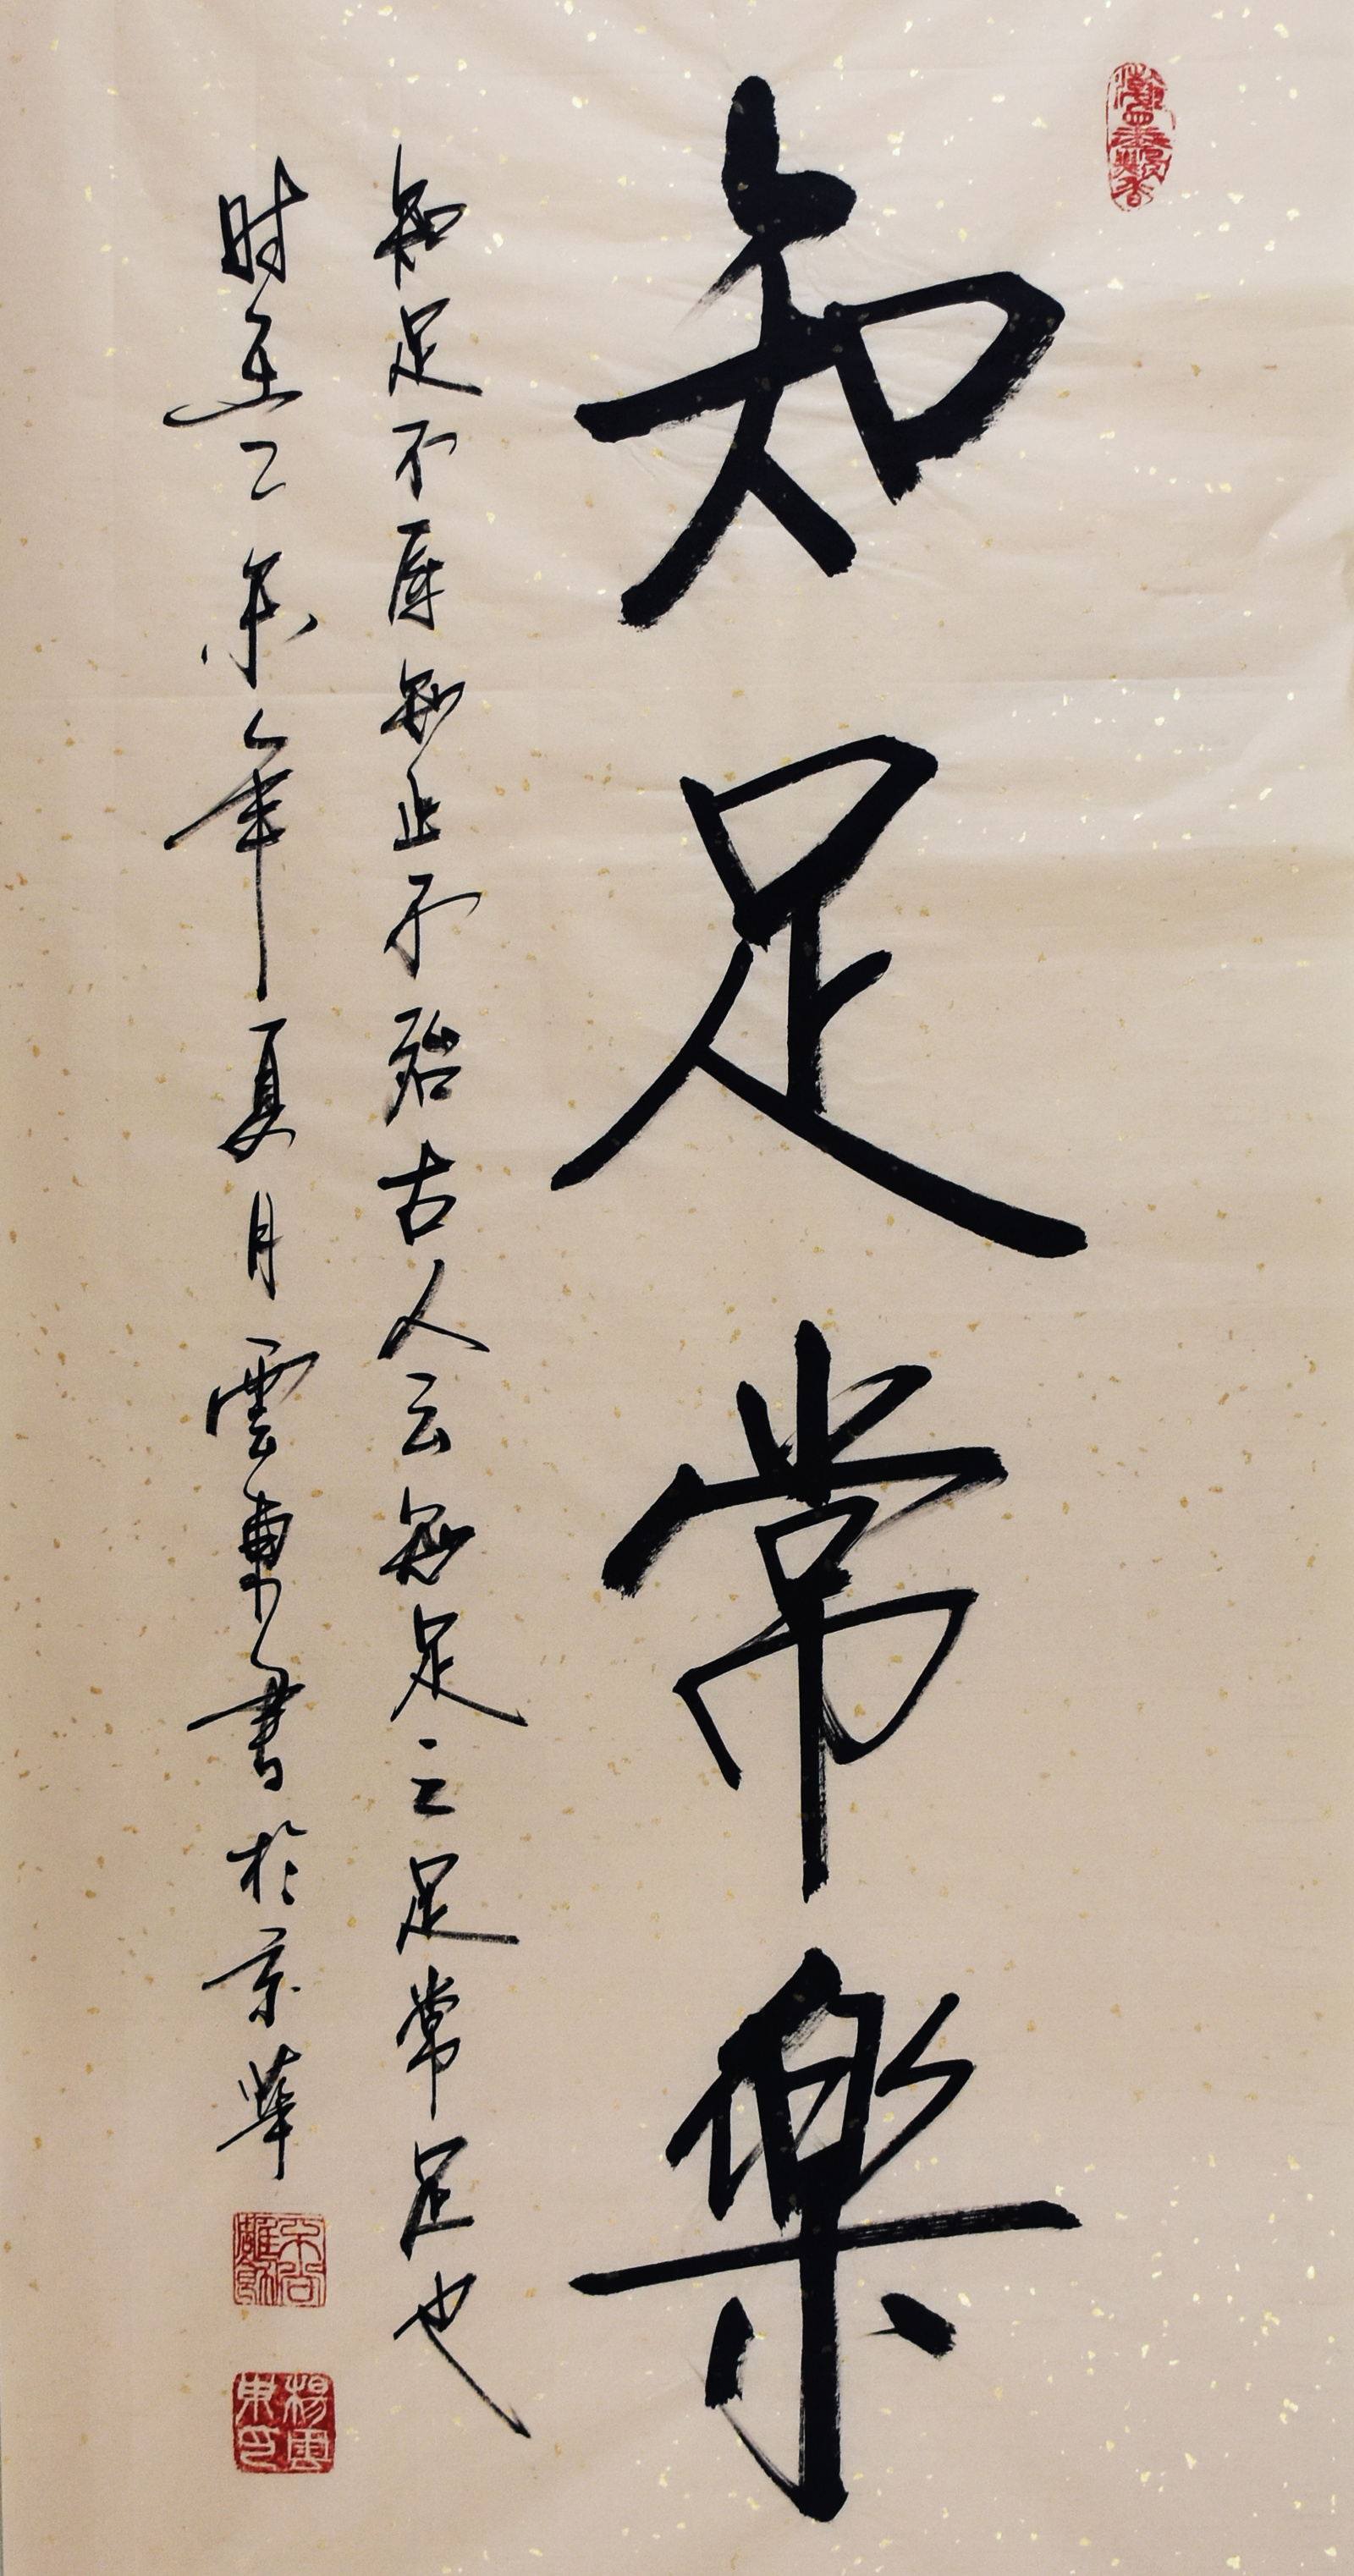 知足常樂
知足不辱知止不殆古人云知足之足常足也
时在乙未年夏月雲東書於京華
楊雲東印